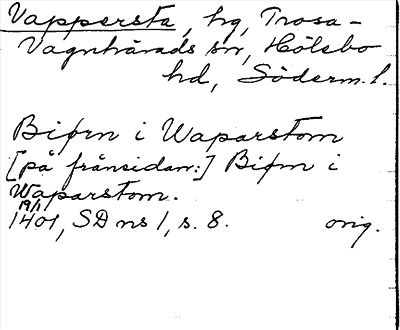 Vappersta, hg, Trosa-
Vagnhärads sn, Hölebo
hd, Söderm. l.
Biørn i Waparstom
[på frånsidan:] Biørn i
Waparstom.
19/1
1401, SD ns 1, s. 8. orig.